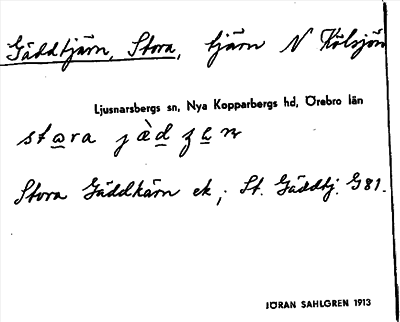 Gäddtjärn, Stora, tjärn N Kölsjön
Ljusnarsbergs sn, Nya Kopparbergs hd, Örebro län
Stora Gäddkärn ek, St. Gäddtj. G81.
JÖRAN SAHLGREN 1913